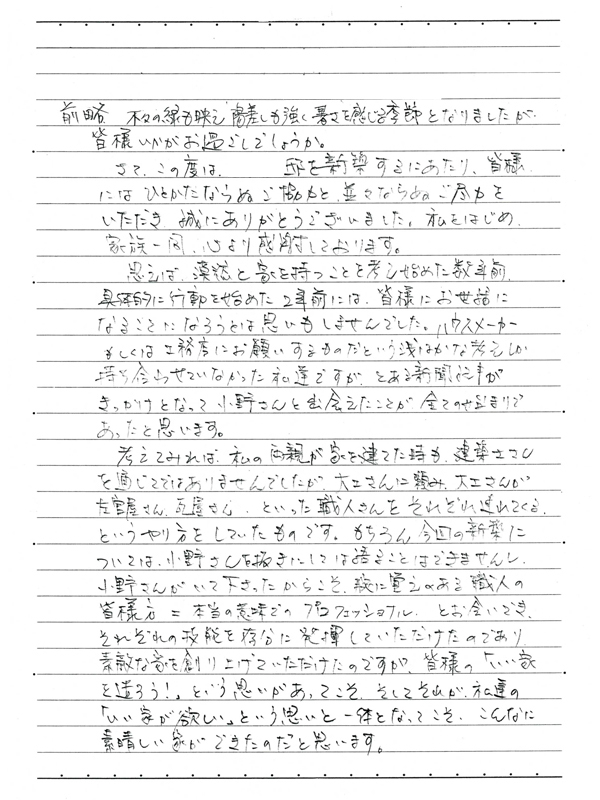 前略　木々の緑も映え　陽差しも強く暑さを感じる季節となりましたが、
皆様いかがお過ごしでしょうか。
さて、この度は、　　　邸を新築するにあたり、皆様
にはひとかたならぬご協力と、並々ならぬご尽力を
いただき誠にありがとうございました。私をはじめ、
家族一同、心より感謝しております。
思えば、漠然と家を持つことを考え始めた数年前、
具体的に行動を始めた2年前には、皆様にお世話に
なることになろうとは思いもしませんでした。ハウスメーカー
もしくは工務店にお願いするものだという浅はかな考えしか
持ち合わせていなかった私達ですが、とある新聞記事が
きっかけとなって小野さんと出会えたことが、全ての始まりで
あったと思います。
考えてみれば、私の両親が家を建てた時も、建築士さん
を通じてではありませんでしたが、大工さんに頼み、大工さんが
左官屋さん、瓦屋さん、といった職人さんをそれぞれ連れてくる、
というやり方をしていたものです。もちろん、今回の新築に
ついては、小野さんを抜きにしては語ることはできませんし、
小野さんがいて下さったからこそ、腕に覚えのある職人の
皆様方＝本当の意味でのプロフェッショナル、とお会いでき、
それぞれの技能を存分に発揮していただけたのであり
素敵な家を創り上げていただけたのですが、皆様の「いい家
を造ろう！」という思いがあってこそ、そしてそれが、私達の
「いい家が欲しい」という思いと一体となってこそ、こんなに
素晴しい家ができたのだと思います。